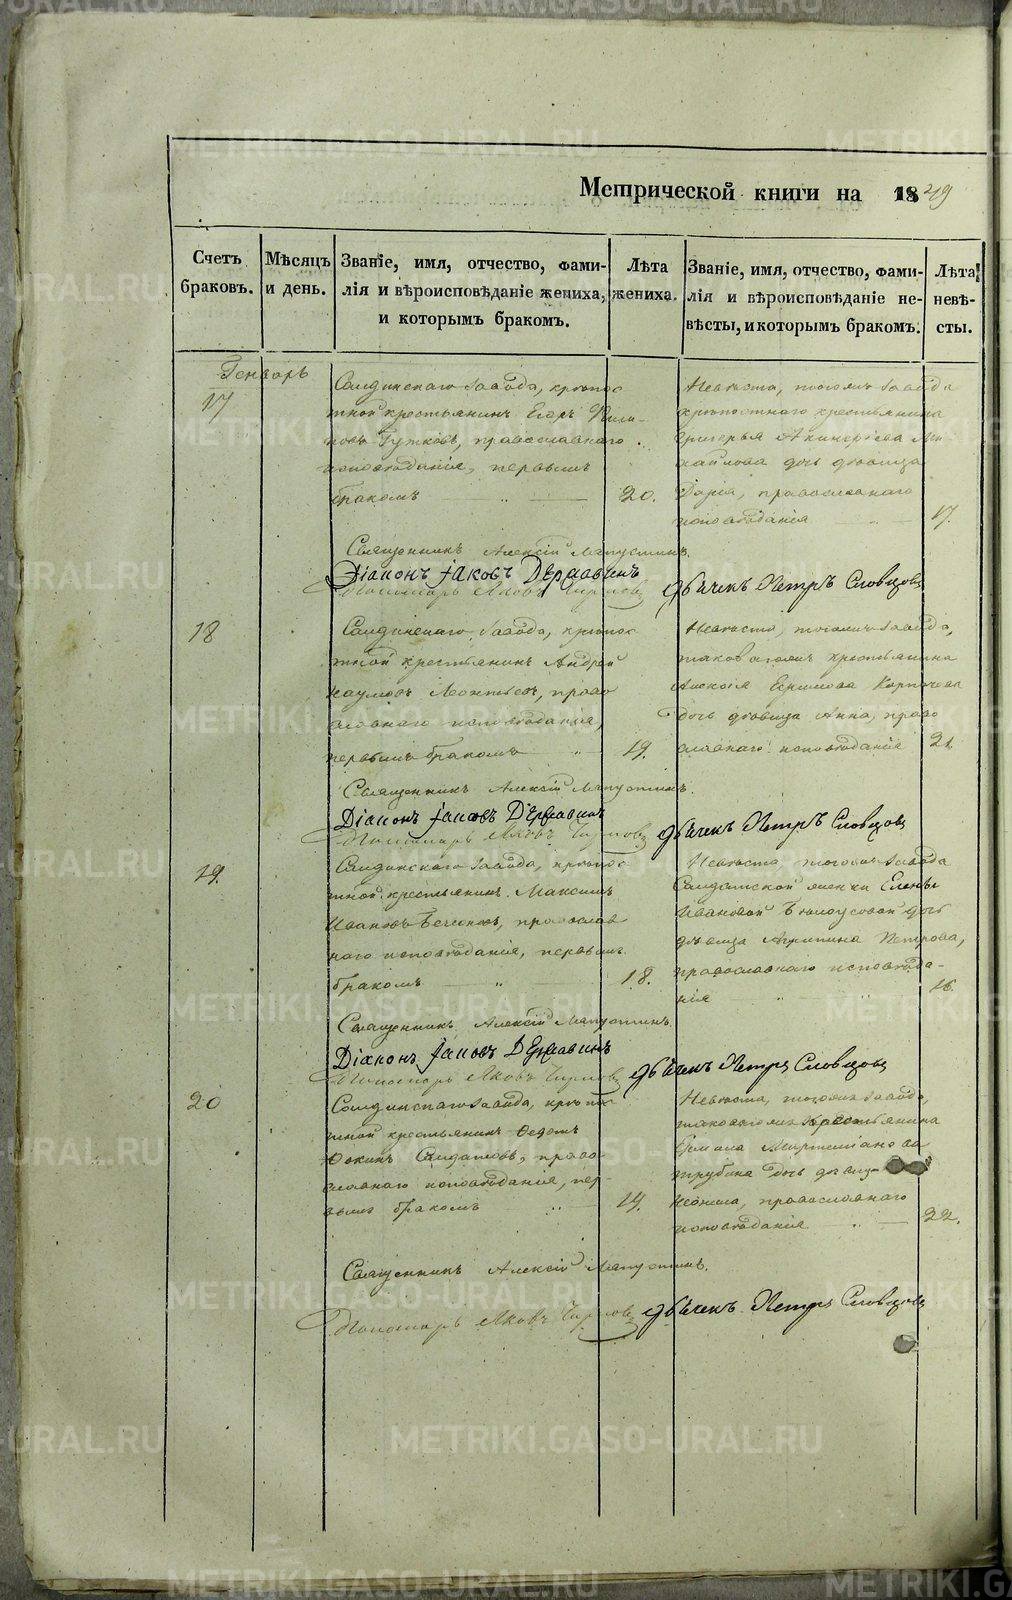 Метрической книги на 1849
Счетъ браковъ.
Мѣсяцъ и день.
Званіе, имя, отчество, фами-
лія и вѣроисповѣданіе жениха,
и которымъ бракомъ.
Лѣта жениха.
Званіе, имя, отчество, фами-
лія и вѣроисповѣданіе не-
вѣсты, и которымъ бракомъ.
Лѣта невѣ-
сты.
Генварь
17
Салдинскаго завода, крѣпос
тной крестьянинъ Егоръ
православнаго
исповѣданія, первымъ
бракомъ
20.
Невѣста, тогожъ завода
крѣпостнаго крестьянина
Григорья
дочь дѣвица
Дарія, православнаго
исповѣданія
17.
Священникъ Алексій Мапустинъ.
Діаконъ Іаковъ Державинъ
Пономарь Яковъ
Дьячекъ Петръ Словцовъ
18
Салдинскаго завода, крѣпос
тной крестьянинъ Андрей
Наумовъ Леонтьевъ, право
славнаго исповѣданія,
первымъ бракомъ
19.
Невѣста, тогожъ завода,
таковагожъ крестьянина
Алексія
дочь дѣвица Анна, право
славнаго исповѣданія
21.
Священникъ Алексій Мапустинъ.
Діаконъ Іаковъ Державинъ
Пономарь Яковъ
Дьячекъ Петръ Словцовъ
19.
Салдинскаго завода, крѣпос
тной крестьянинъ Максимъ
Ивановъ православ
наго исповѣданія, первымъ
бракомъ
18.
Невѣста, тогожъ завода
Солдатской женки Елены
Ивановой Бѣлоусовой дочь
дѣвица Агрипина Петрова,
православнаго исповѣда-
нія
16.
Священникъ Алексій Мапустинъ.
Діаконъ Іаковъ Державинъ
Пономарь Яковъ
Дьячекъ Петръ Словцовъ
20
Салдинскаго завода, крѣпос
тной крестьянинъ Федотъ
Солдатовъ, право
славнаго исповѣданія, пер
вымъ бракомъ
19.
Невѣста, тогожъ завода,
таковагожъ крестьянина
Трубина дочь дѣвиц
православнаго
исповѣданія
22.
Священникъ Алексій Мапустинъ.
Пономарь Яковъ
Дьячекъ Петръ Словцовъ
METRIKI.GASO-URAL.RU